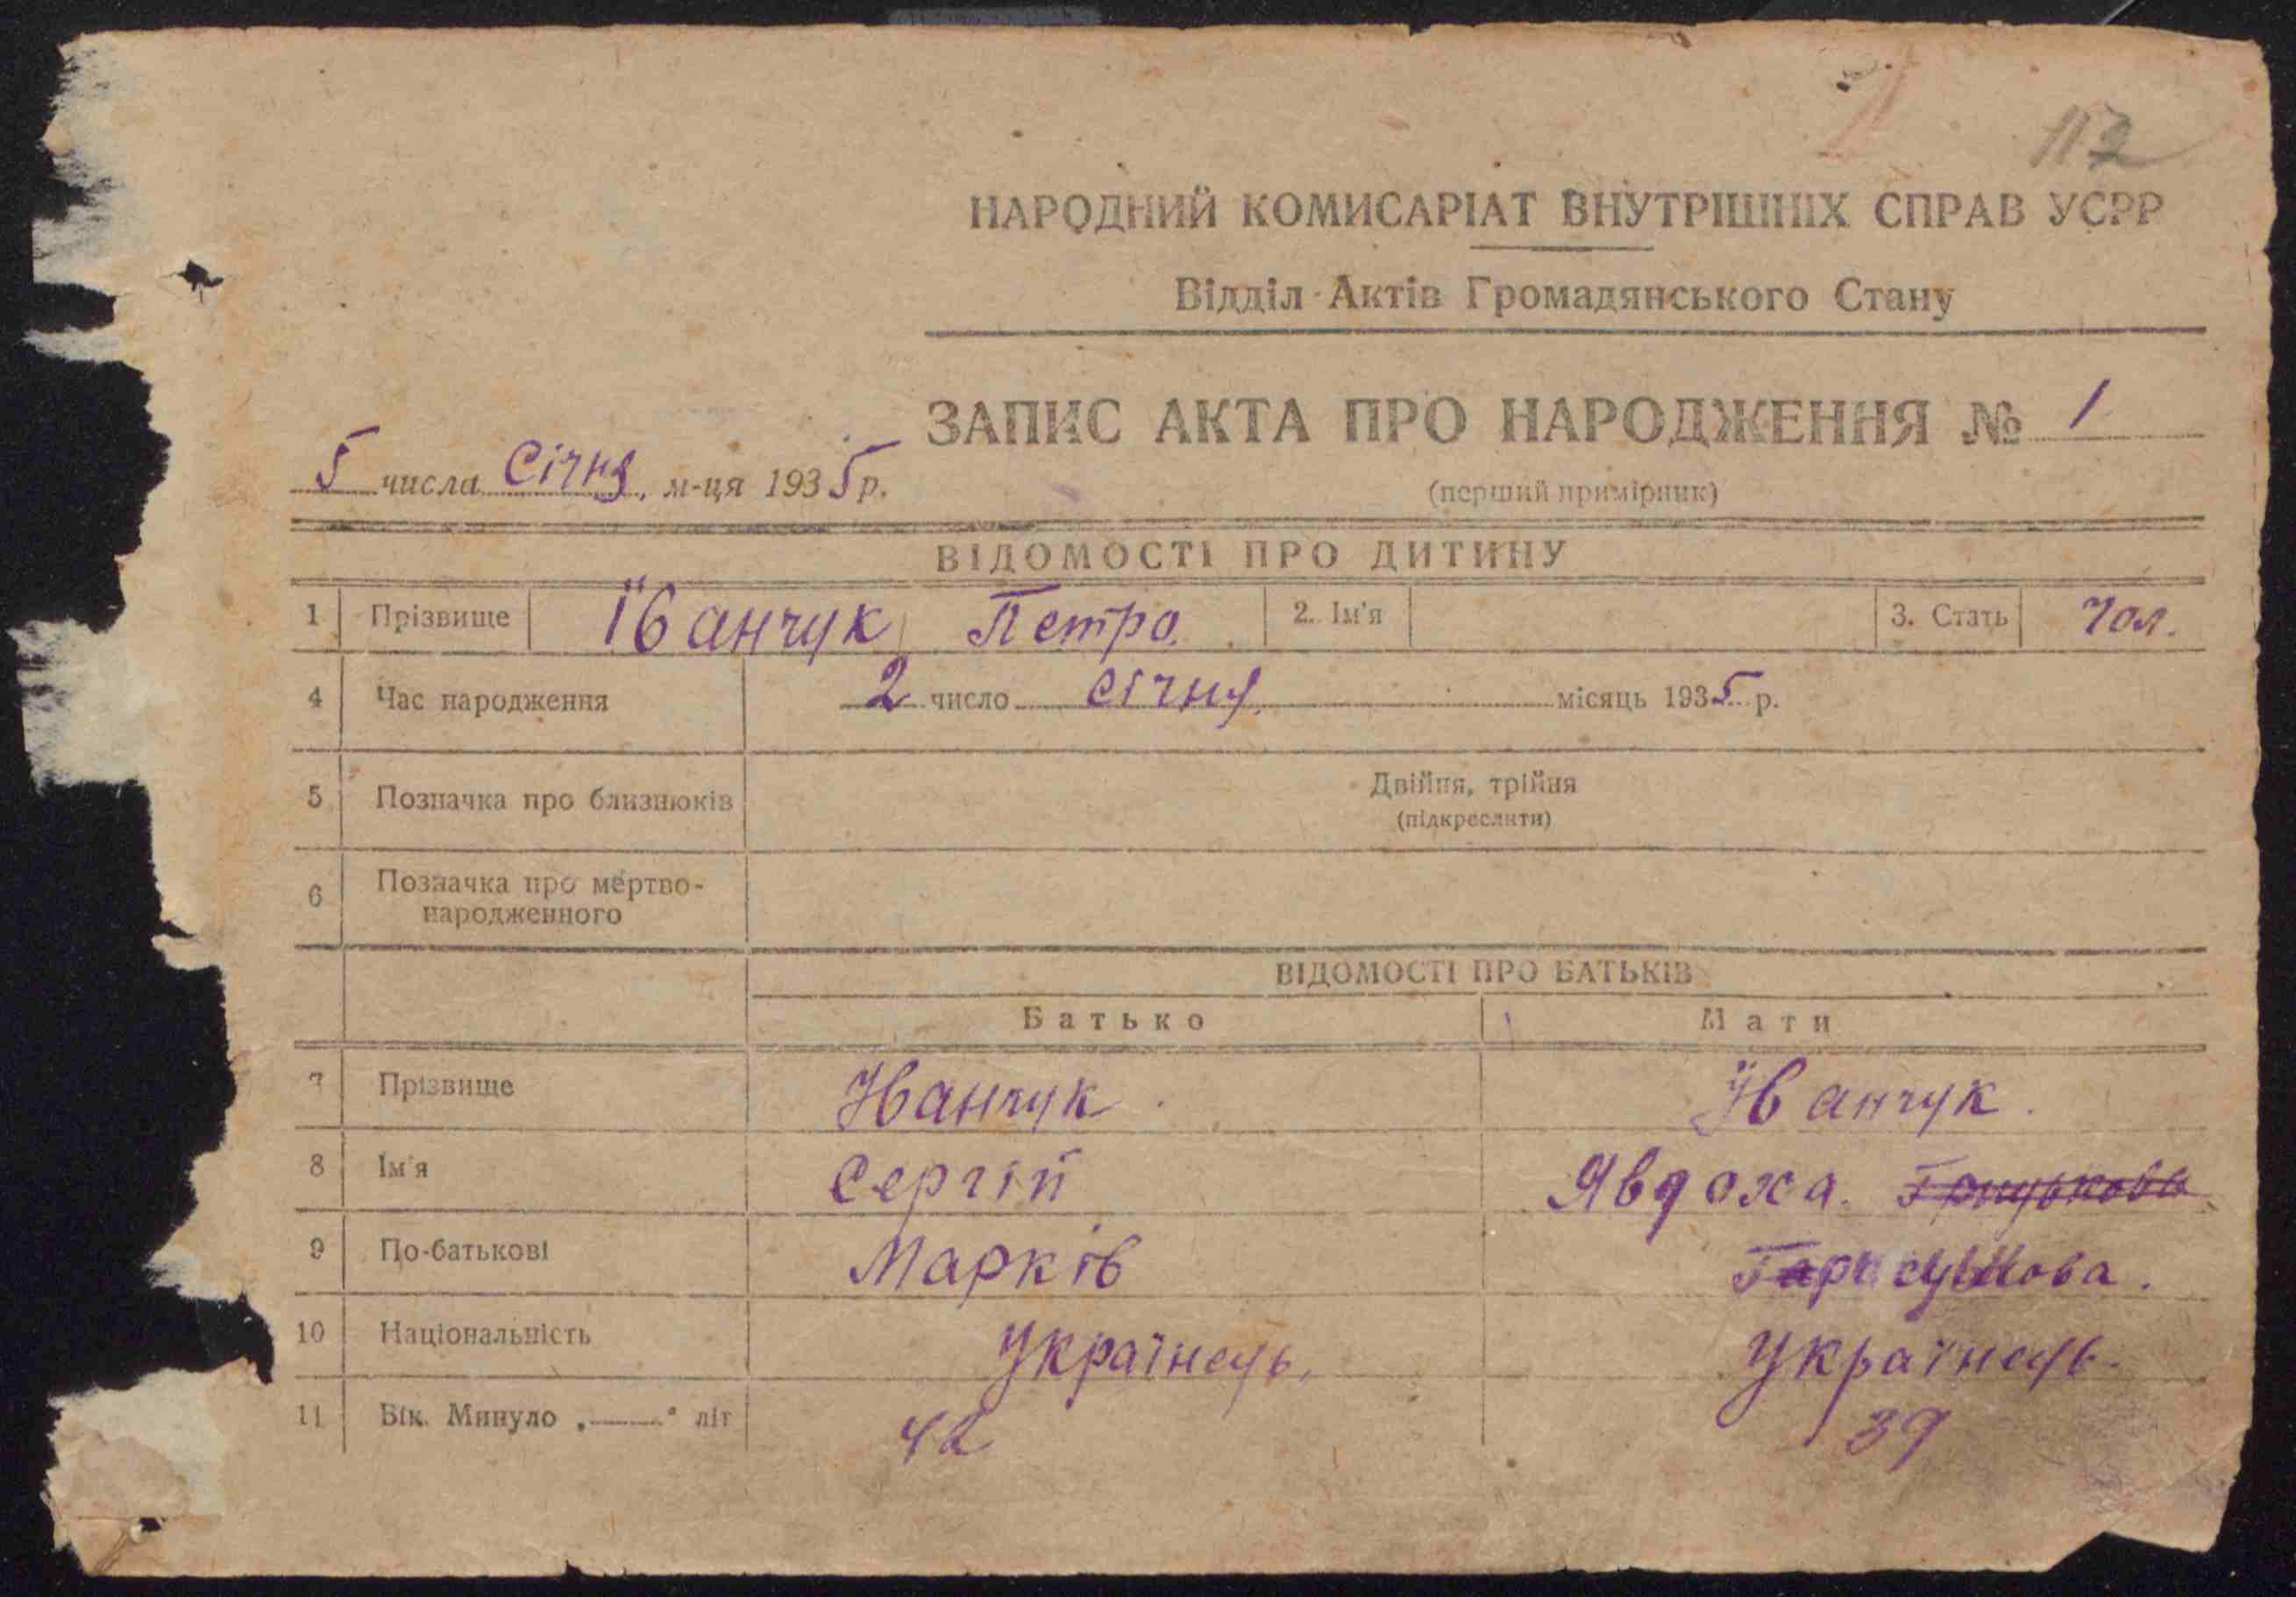 112
НАРОДНИЙ КОМИСАРІАТ ВНУТРІШНІХ СПРАВ УСРР
Відділ Актів Громадянського Стану
ЗАПИС АКТА ПРО НАРОДЖЕННЯ № 1
5 числа Січня м-ця 1935 р.
(перший примірник)
ВІДОМОСТІ ПРО ДИТИНУ
1 Прізвище Іванчук Петро. 2. Ім'я 3. Стать Чол.
4 Час народження 2 число січня місяць 1935 р.
5 Позначка про близнюків Двійня, трійня
(підкреслити)
6 Позначка про мертво-
народженного
ВІДОМОСТІ ПРО БАТЬКІВ
Батько Мати
7 Прізвище Іванчук Іванчук.
8 Ім'я Сергій Явдоха.
9 По-батькові Марків
10 Національність Українець. Українець.
11 Вік. Минуло „——" літ 42 39